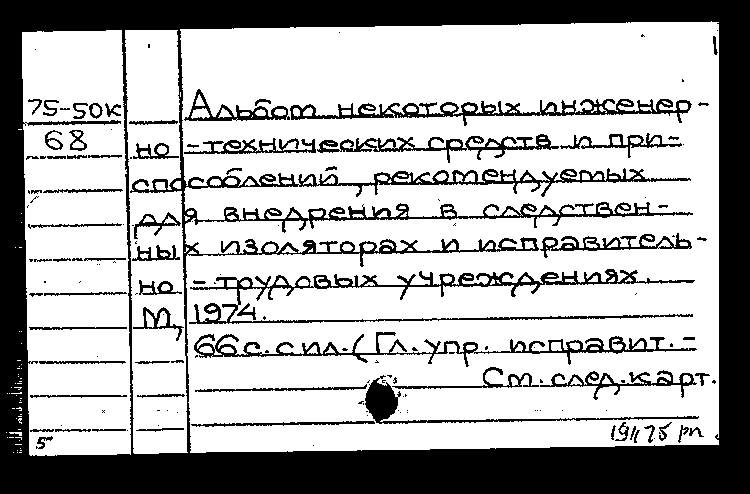 75-50к Альбом некоторых инженер-
68 но-технических средств и при-
способлений, рекомендуемых
для внедрения в следствен-
ных изоляторах и исправитель-
но-трудовых учреждениях.
М, 1974.
66 с. с ил. (Гл. упр. исправит.-
См. след. карт.
5